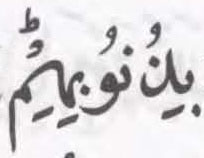 بِذُنُوْبِهِمْؕ